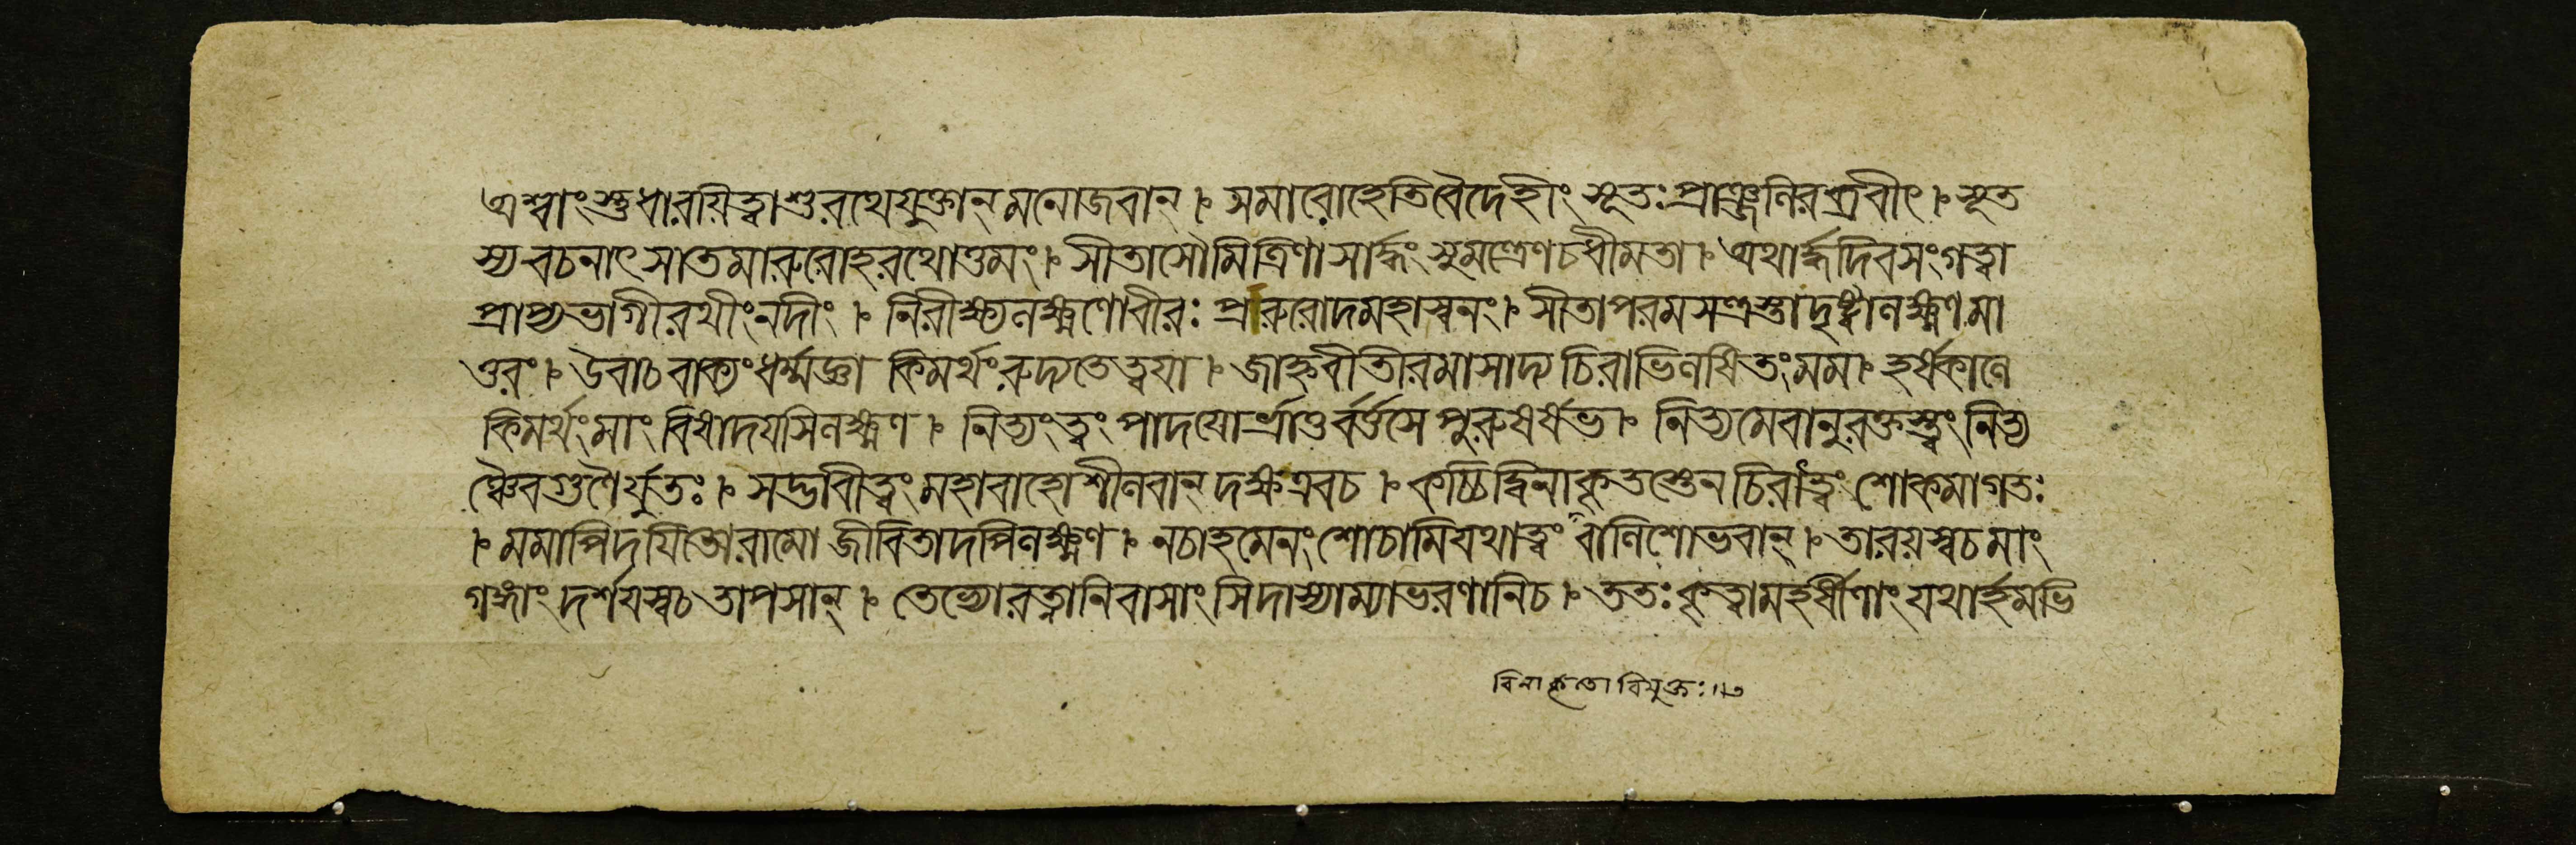 অশ্বাংস্তুধারয়িত্বাশুরথেযুক্তান্ মনোজবান্ । সমারোহেতিবৈদেহীং সূতঃপ্রাঞ্জলিরব্রবীৎ । সূত
স্য বচনাৎ সাতমারুরোহরথোত্তমং । সীতাসৌমিত্রিণা সার্দ্ধং সুমন্ত্রেণ চ ধীমতা । অথার্দ্ধদিবসংগত্বা
প্রাপ্যভাগীরথীংনদীং । নিরীক্ষ্যলক্ষ্মণোবীরঃ প্ররুরোদমহাস্বনং । সীতাপরমসন্ত্রস্তাদৃষ্ট্বালক্ষ্মণমা
তুরং । উবাচ বাক্যংধর্ম্মজ্ঞা কিমর্থংরুদ্যতেত্বয়া । জাহ্নবীতীরমাসাদ্য চিরাভিলষিতংমম । হর্ষকালে
কিমর্থংমাং বিষাদয়সিলক্ষ্মণ । নিত্যংত্বং পাদয়োর্ভ্রাতুর্বর্ত্তসে পুরুষর্ষভ । নিত্যমেবানুরক্তস্ত্বং নিত্য
ঞ্চৈবগুণৈর্যুতঃ । সদ্ভাবীত্বং মহাবাহোশীলবান্ দক্ষ এবচ । কচ্চিদ্বিনাকৃতস্তেন চিরাত্ত্বং শোকমাগতঃ
। মমাপিদয়িতোরামো জীবিতাদপিলক্ষ্মণ । নচাহমেনং শোচামিযথাত্বং বালিশোভবান্ । তারয়স্বচমাং
গঙ্গাং দর্শয়স্বচ তাপসান্ । তেভ্যোরত্নানিবাসাংসিদাস্যাম্যাভরণানিচ । ততঃকৃত্বামহর্ষীণাং যথার্হমভি
বিনাকৃতো বিযুক্তঃ